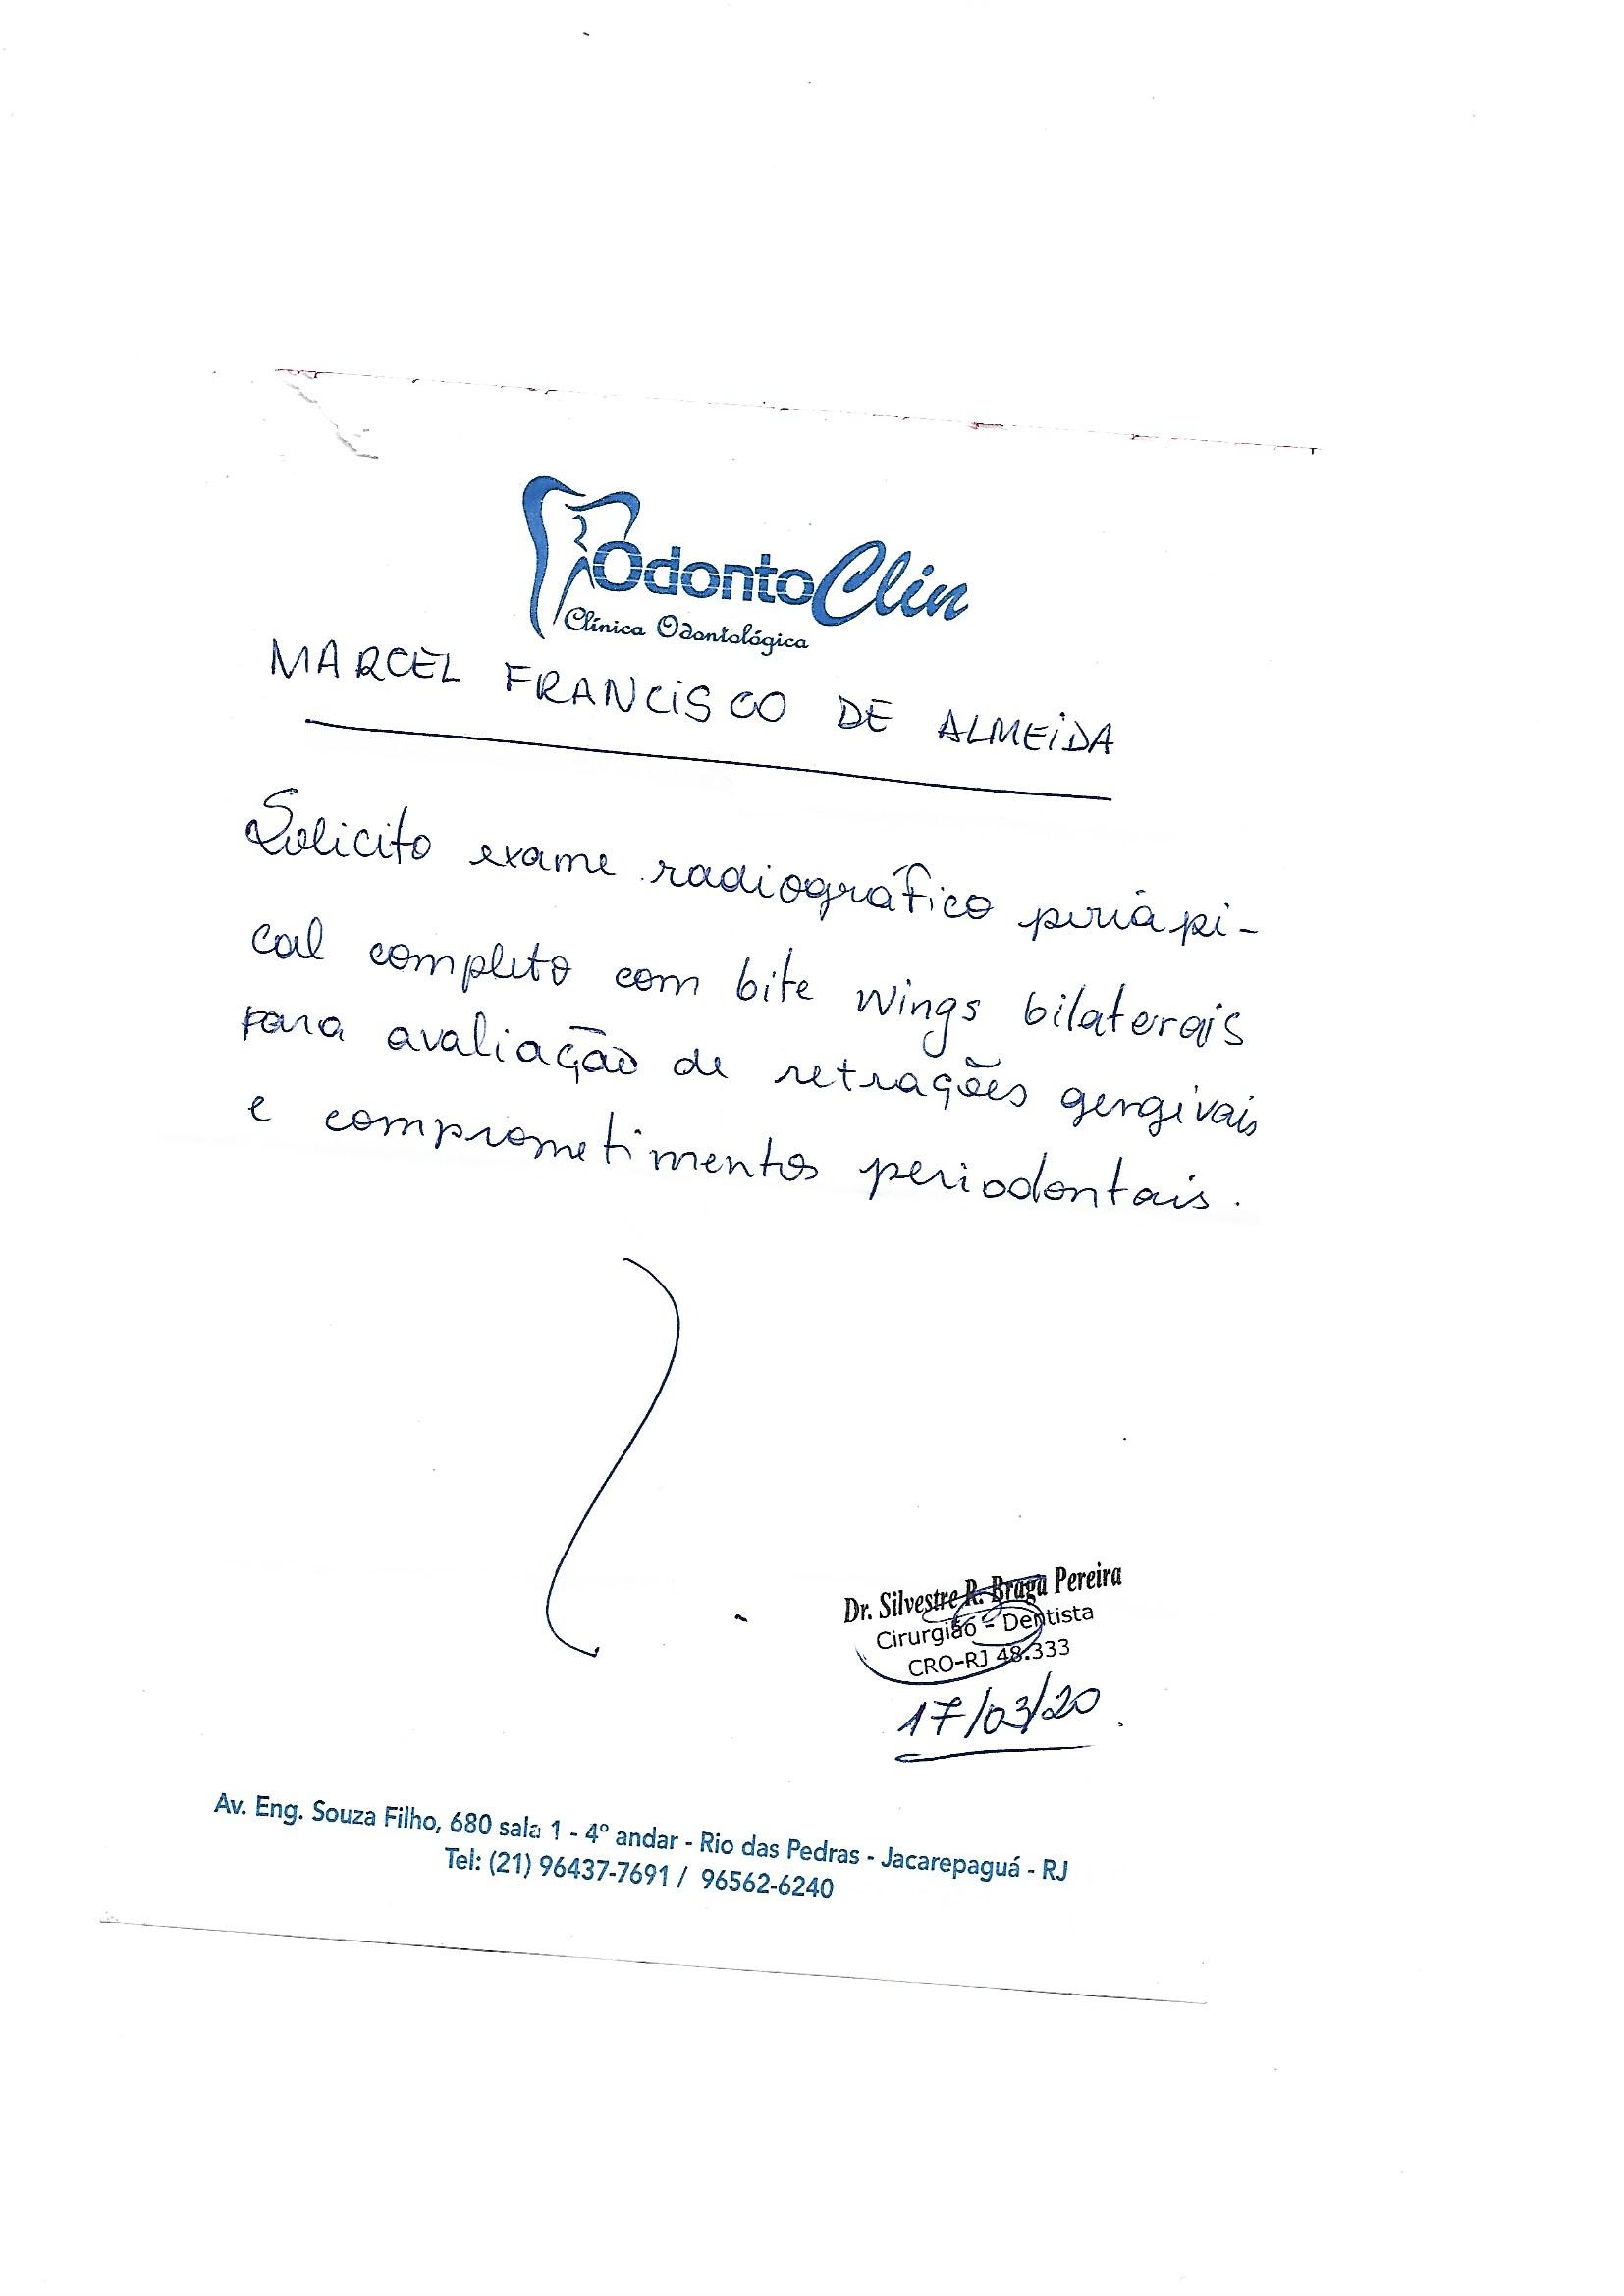 OdontoClin
Clínica Odontológica
MARCEL FRANCISCO DE ALMEIDA
Solicito exame radiográfico periápi-
cal completo com bite wings bilaterais
para avaliação de retrações gengivais
e comprometimentos periodontais.
Dr. Silvestre R. Braga Pereira
Cirurgião - Dentista
CRO-RJ 48.333
17/03/20.
Av. Eng. Souza Filho, 680 sala 1 - 4º andar - Rio das Pedras - Jacarepaguá - RJ
Tel: (21) 96437-7691 / 96562-6240